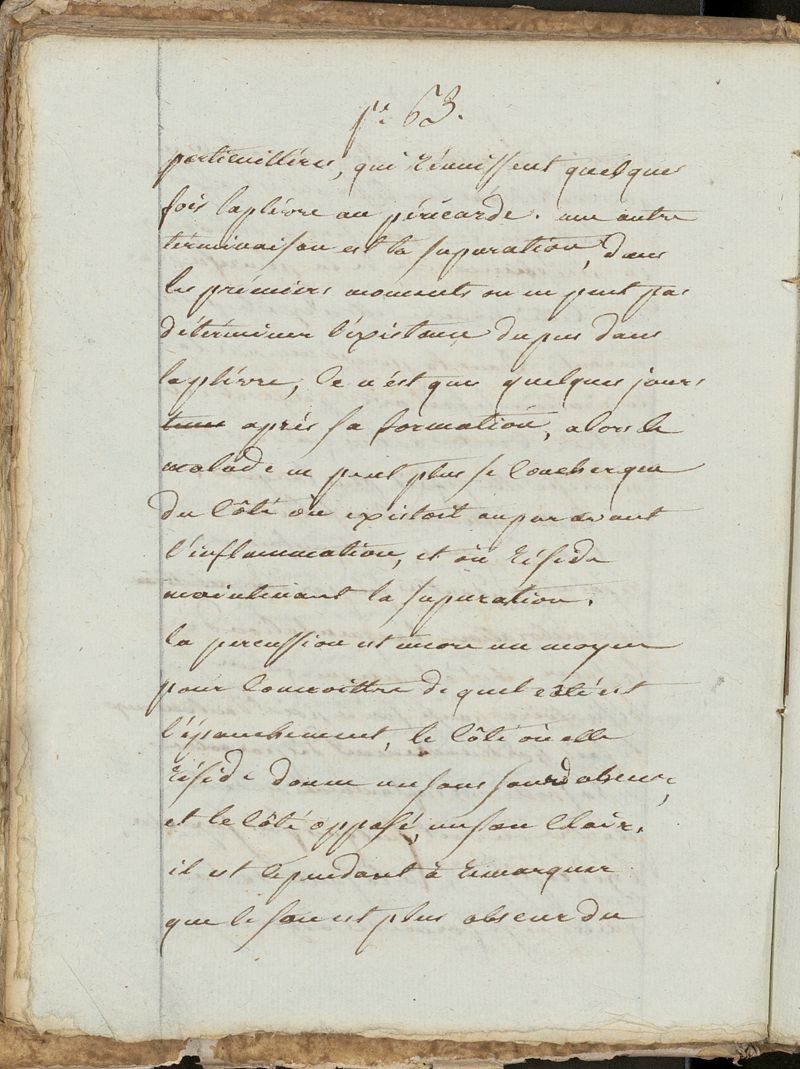 pe. 63.
particuilliéres, qui réunissent quelques
fois la plévre au péricarde. une autre
términaison est la supuration, dans
les prémiérs moments on ne peut pas
détérminer l'éxistance du pus dans
la plévre, ce n'est que quelques jours
après sa formation, alors le
malade ne peut plus se coucher que
du côté où existoit auparavant
l'inflammation, et où réside
maintenant la supuration.
la percussion est encore un moyen
pour connoittre de quel côté est
l'épanchement, le côté où elle
réside donne un sons sourd obscur,
et le côté opposé, un son clair.
il est cependant à remarquer
que le son est plus obscur du